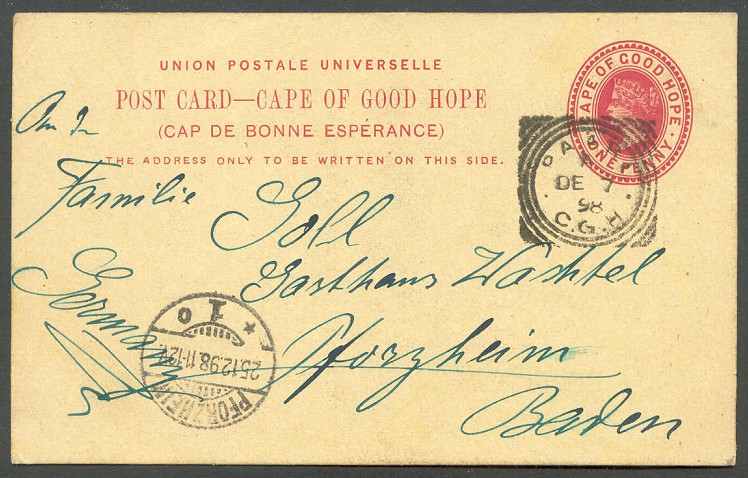 UNION POSTALE UNIVERSELLE
POST CARD—CAPE OF GOOD HOPE
(CAP DE BONNE ESPÉRANCE)
THE ADDRESS ONLY TO BE WRITTEN ON THIS SIDE.
CAPE OF GOOD HOPE
ONE PENNY
DE 7
98
C.G.H.
An
Familie Goll
Gasthaus Wächtel
Pforzheim
Baden
Germany
PFORZHEIM
25.12.98.11-12
* I O